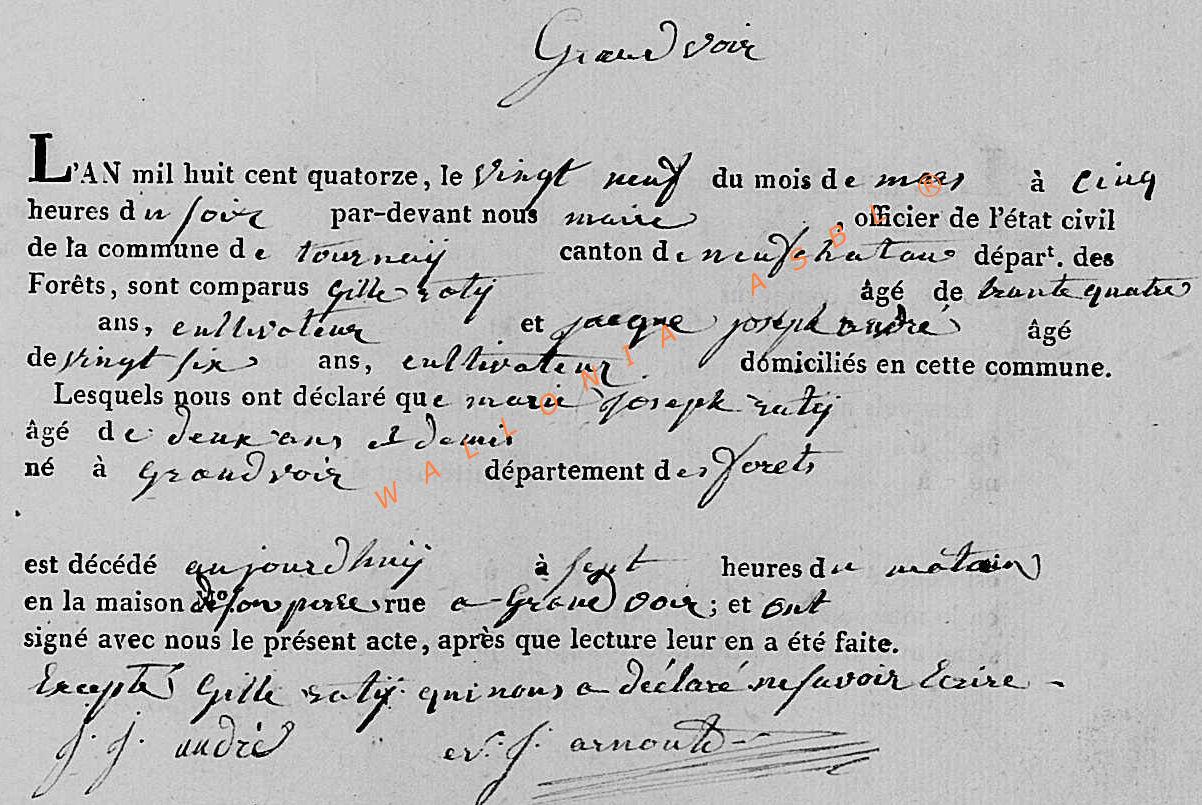 Grandvoir
L'AN mil huit cent quatorze, le vingt neuf du mois de mars à cinq
heures du soir par-devant nous maire , officier de l'état civil
de la commune de tournay canton de neufchatau départ. des
Forêts, sont comparus gille raty âgé de trante quatre
ans, cultivateur et jacque joseph andré âgé
de vingt six ans, cultivateur domiciliés en cette commune.
Lesquels nous ont déclaré que marie joseph raty
âgé de deux ans et demis
né à Grandvoir département des forets
est décédé aujourdhuy à sept heures du matain
en la maison de son perre rue a Grandvoir; et ont
signé avec nous le présent acte, après que lecture leur en a été faite.
Excepté Gille raty qui nous a déclaré ne savoir Ecrire
j. j. andré j. arnould
WALLONIA ASBL ®